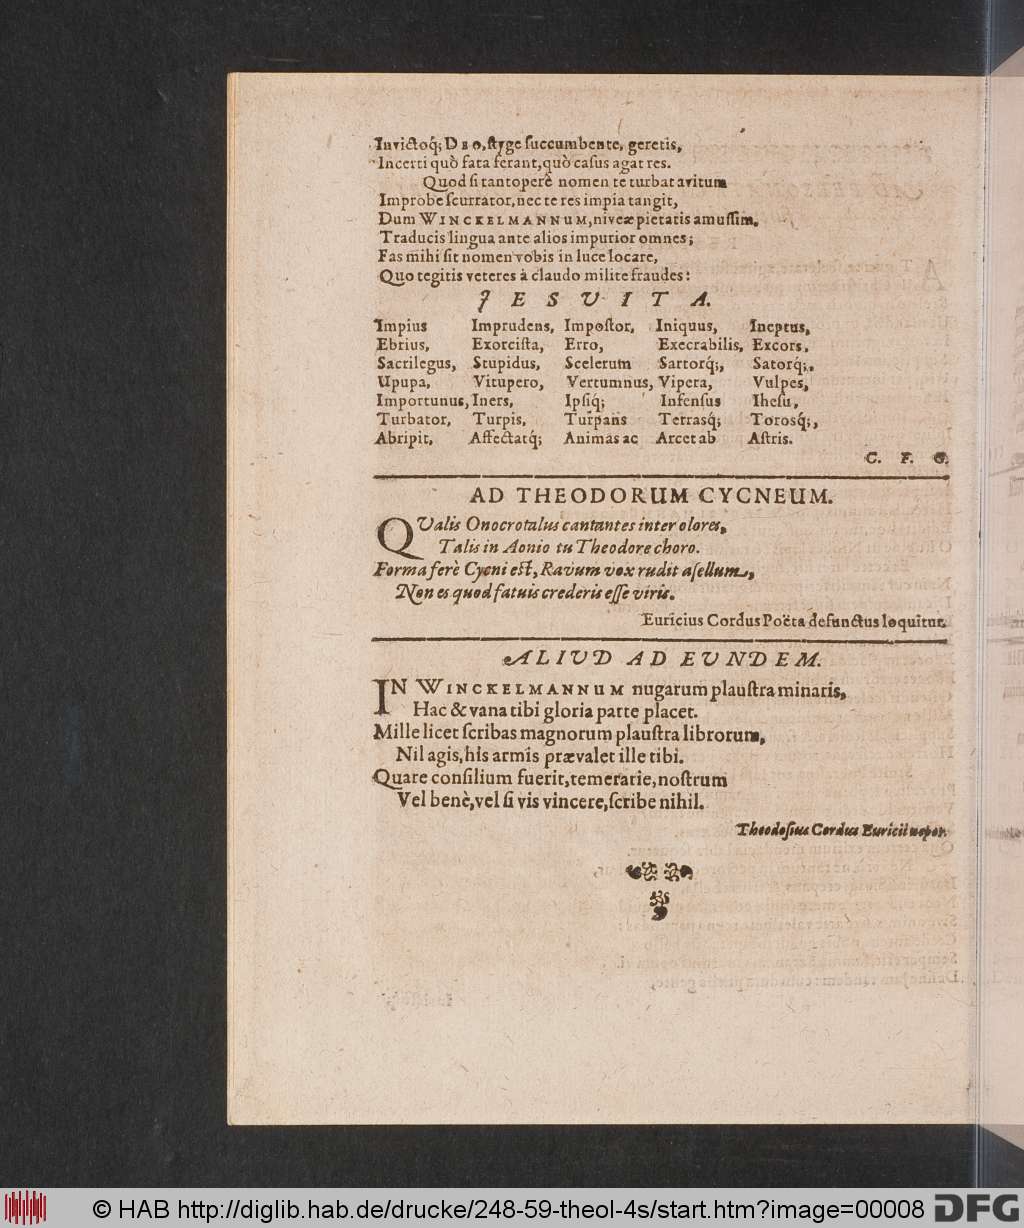 Invictoq́; DEO, ſtyge ſuccumbente, geretis,
Incerti quò fata ferant, quò caſus agat res.
Quod ſi tantoperè nomen te turbat avitum
Improbe ſcurrator, nec te res impia tangit,
Dum WINCKELMANNUM, niveæ pietatis amuſſim,
Traducis lingua ante alios impurior omnes;
Fas mihi ſit nomen vobis in luce locare,
Quo tegitis veteres à claudo milite fraudes:
JESUITA.
Impius Imprudens, Impoſtor, Iniquus, Ineptus,
Ebrius, Exorciſta, Erro, Execrabilis, Excors,
Sacrilegus, Stupidus, Scelerum Sartorq́;, Satorq́;,
Upupa, Vitupero, Vertumnus, Vipera, Vulpes,
Importunus, Iners, Ipſiq́; Infenſus Iheſu,
Turbator, Turpis, Turpans Terrasq́; Torosq́;,
Abripit, Affectatq́; Animas ac Arcet ab Aſtris.
C. F. G.
AD THEODORUM CYCNEUM.
QUalis Onocrotalus cantantes inter olores,
Talis in Aonio tu Theodore choro.
Forma ferè Cycni eſt, Ravum vox rudit aſellum,
Non es quod fatuis crederis eſſe viris.
Euricius Cordus Poëta defunctus loquitur.
ALIUD AD EUNDEM.
IN WINCKELMANNUM nugarum plauſtra minaris,
Hac & vana tibi gloria parte placet.
Mille licet ſcribas magnorum plauſtra librorum,
Nil agis, his armis prævalet ille tibi.
Quare conſilium fuerit, temerarie, noſtrum
Vel benè, vel ſi vis vincere, ſcribe nihil.
Theodoſius Cordus Euricii nepos.
© HAB http://diglib.hab.de/drucke/248-59-theol-4s/start.htm?image=00008
DFG